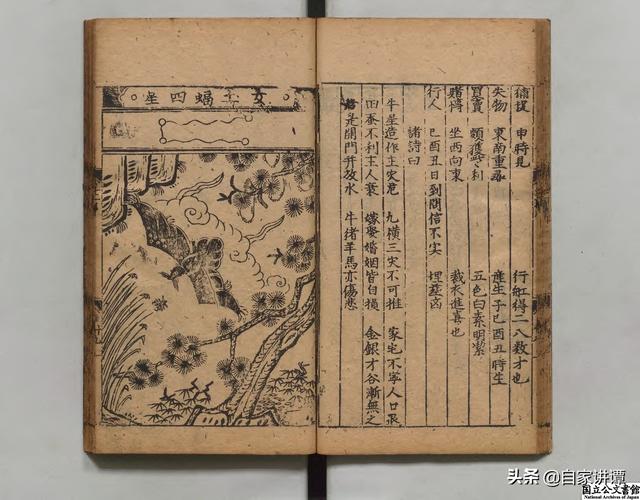 捕捉 申時見 行舡得二八数才也
失物 東南重尋 産生子巳酉丑時生
買賣 頗獲些々利 五色白素明潔
賭博 坐西向東 裁衣進喜也
行人 巳酉丑日到 信不实 埋葬凶
諸詩曰
牛星造作主灾危 九横三灾不可推 家宅不寧人口退
田蚕不利主人衰 嫁娶婚姻皆自損 金銀才谷漸無之
若是開門并放水 牛猪羊馬亦傷悲
女土蝠四星
头条 @自家讲谭
国立公文書館
National Archives of Japan